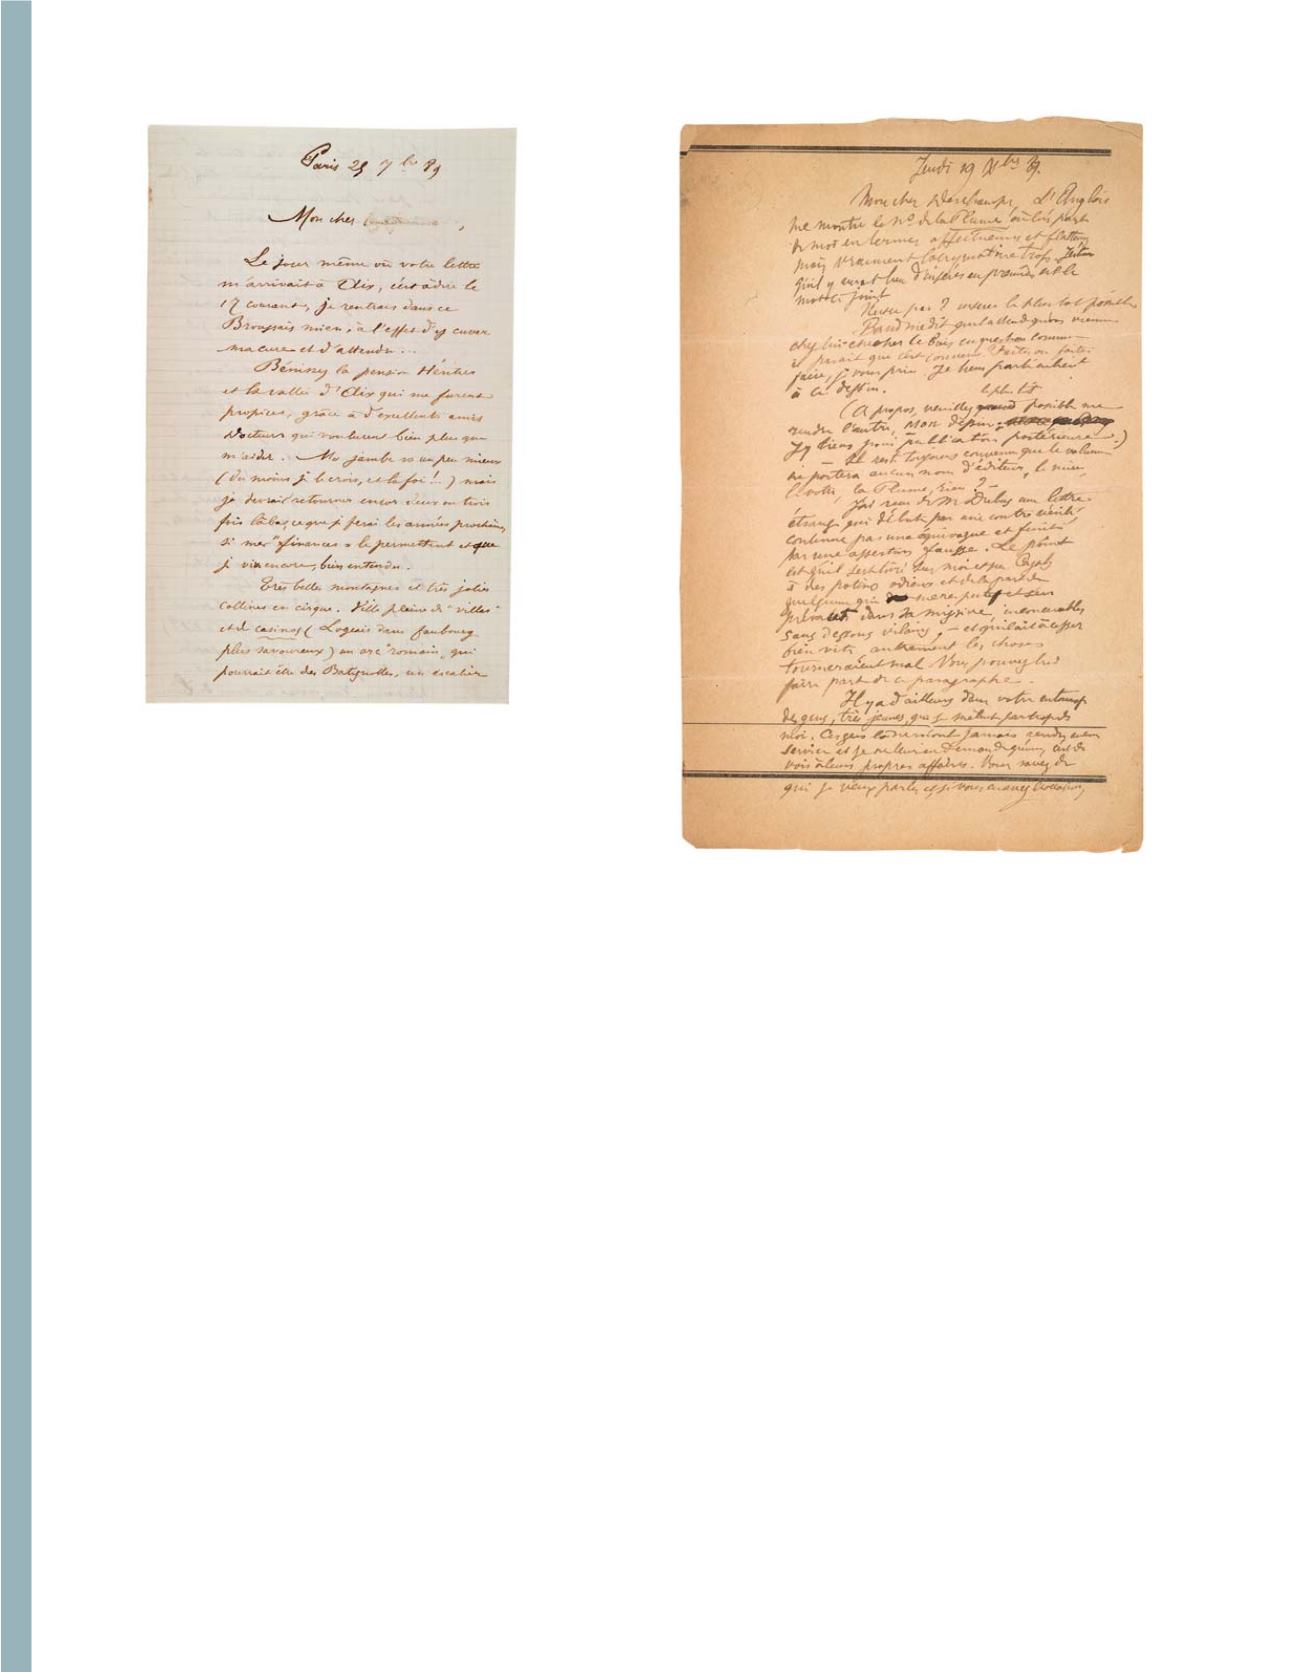 Paris 25 7bre 89
Mon cher
Le jour même où votre lettre
m'arrivait à Aix, c'est à dire le
17 courant, je rentrais dans ce
Broussais mien, à l'effet d'y cuver
ma cure et d'attendre...
Bénissez la pension Héritier
et la vallée d'Aix qui me furent
propices, grâce à d'excellents amis
docteurs qui voulurent bien plus que
m'aider. Ma jambe va un peu mieux
(du moins je le crois, et la foi!..) mais
je devrai retourner encor deux ou trois
fois là bas, ce que je ferai les années prochaines,
si mes "finances" le permettent et que
je vive encore, bien entendu.
Très belles montagnes et très jolies
collines en cirque. Ville pleine de "villas"
et de casinos (Logeais dans faubourg
plus savoureux) un arc "romain" qui
pourrait être des Batignolles, un escalier
Jeudi 19 Xbre 89.
Mon cher Deschamps, D'Anglois
me montre le no de la Plume où l'on parle
de moi en termes affectueux et flatteurs
mais vraiment lacrymatoire trop.
qu'il y aurait lieu d'insérer en première et le
mot ci joint
N'est ce pas? insérez le plus tôt possible
me dit qu'il attend qu'on vienne
chez lui chercher le bois en question comme
il paraît que c'est convenu. Faites ou faites
faire, je vous prie. Je tiens particulièrement
à ce dessin.
le plus tôt
(A propos, veuillez possible me
rendre l'autre, mon dessin
J'y tiens pour publication postérieure.)
— Il reste toujours convenu que le volume
ne portera aucun nom d'éditeur, le mien,
le votre, la Plume, rien? —
J'ai reçu de M. Dubus une lettre
étrange qui débute par une contre vérité
continue par une équivoque et finit
par une assertion fausse. Le point
est qu'il s'est livré sur moi et sur Cazals
à des potins odieux et de la part de
quelqu'un qui
dans sa misère, inexcusables
sans dessous vilains, — et qu'il ait à cesser
bien vite autrement les choses
tourneraient mal. Vous pouvez lui
faire part de ce paragraphe.
Il y a d'ailleurs dans votre entourage
des gens, très jeunes, que je
moi. Ces gens là ne m'ont jamais rendu aucun
service et je ne leur en demande qu'un, c'est de
voir à leurs propres affaires. Vous savez de
qui je veux parler et si vous en avez l'occasion,